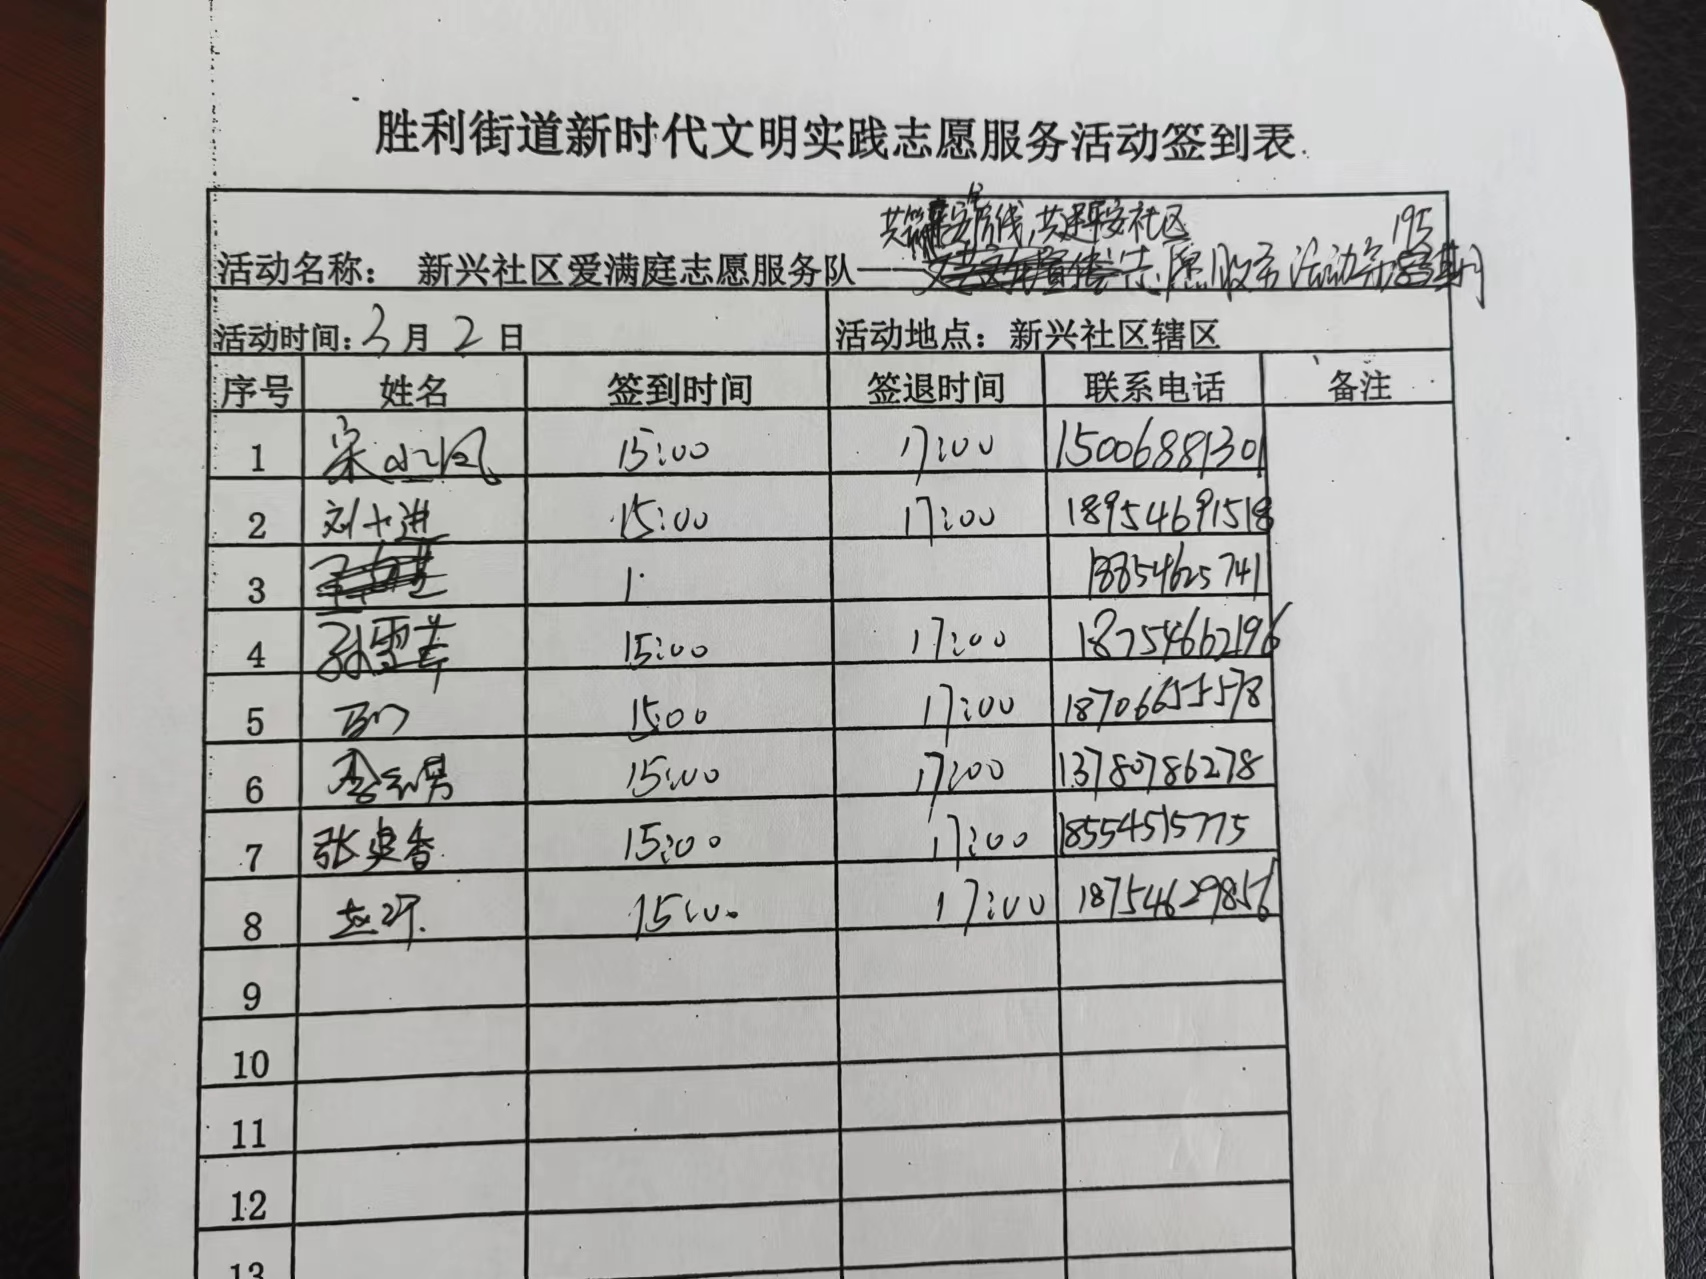 胜利街道新时代文明实践志愿服务活动签到表
共筑安全防线,共建平安社区
活动名称: 新兴社区爱满庭志愿服务队——志愿服务活动第195期
活动时间:3月2日 活动地点:新兴社区辖区
序号 姓名 签到时间 签退时间 联系电话 备注
1 宋 15:00 17:00 15006881301
2 刘 进 15:00 17:00 18954691518
3 1 18854625741
4 孙雪萍 15:00 17:00 18754662196
5 15:00 17:00 18706655578
6 李 男 15:00 17:00 13780786278
7 张爽香 15:00 17:00 18554515775
8 15:00 17:00 18754629856
9
10
11
12
13